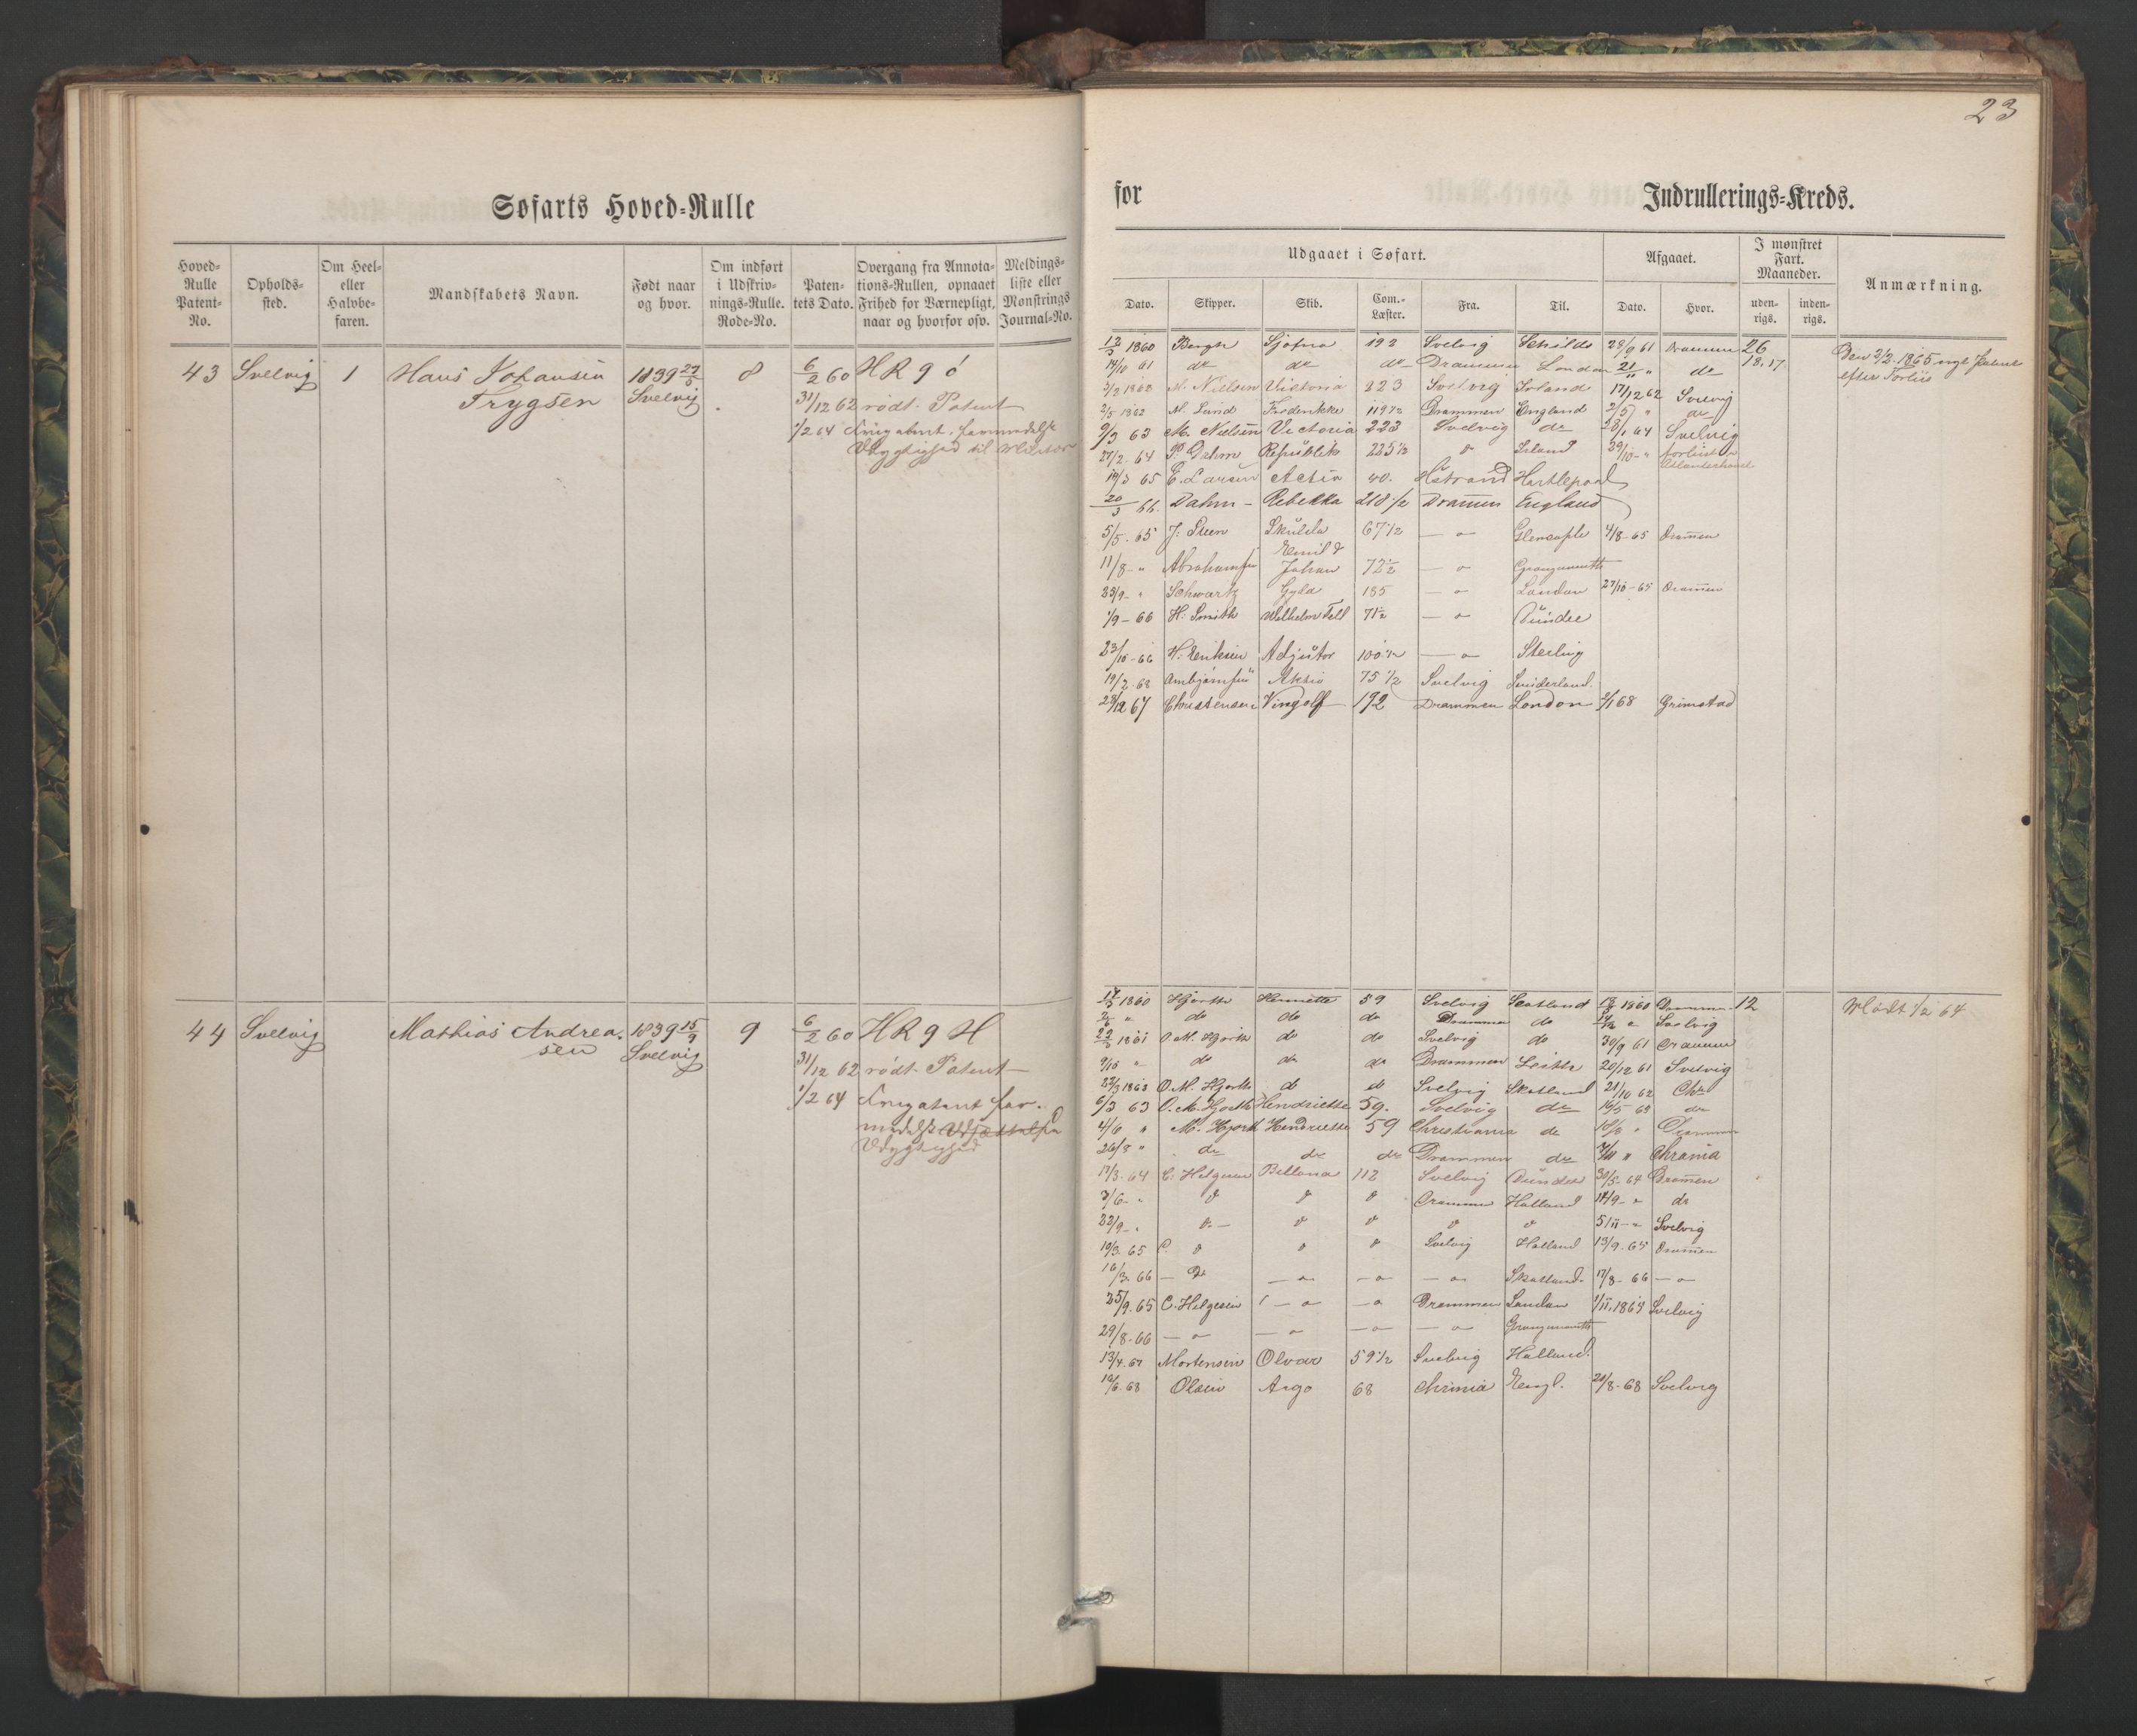 23
Søfarts Hoved-Rulle
for Indrullerings-Kreds.
Hoved-Rulle Patent-No.
Opholds-sted.
Om Heel- eller Halvbe-faren.
Mandskabets Navn.
Født naar og hvor.
Om indført i Udskriv-nings-Rulle. Rode-No.
Paten-tets Dato.
Overgang fra Annota-tions-Rullen, opnaaet Frihed for Værnepligt, naar og hvorfor osv.
Meldings-liste eller Mønstrings Journal-No.
Udgaaet i Søfart.
Dato. Skipper. Skib. Com.-Læster. Fra. Til.
Afgaaet.
Dato. Hvor.
I mønstret Fart. Maaneder.
uden-rigs. inden-rigs.
Anmærkning.
43 Svelvig 1 Hans Johansen 1839 27/5 8 6/2 60 HR 9 6
Trygsen Svelvig 31/12 62 rødt Patent
1/2 64
Udygtighed til
12/3 1860 Bergh Sjofna 192 Svelvig Schilds 28/9 61 Drammen 26
14/10 61 do do do Drammen London 21/11 " do 18.17
Den 2/2 1865 nyt Patent
efter Forliis
3/2 1862 M. Nielsen Victoria 223 Svelvig Irland 17/12 62 Svelvig
2/5 1862 M. Lund Fredrikke 119 1/2 Drammen England 2/5 " do
9/3 63 M. Nielsen Victoria 223 Svelvig do 28/1 64 Svelvig
27/2 64 P. Dahm Republik 225 1/2 " Irland 29/10 " forliist i
Atlanterhavet
14/3 65 E. Larsen Activ 40. Hartlepool
20/3 66. Dahm - Rebekka 218 1/2 Drammen England
5/5 - 65 J. Steen Skulda 67 1/2 — " 4/8 - 65 Drammen
11/8 - " Abrahamsen Emil & Johan 72 1/2 — " Grangemouth
25/9 - " Schwartz Gyda 185 — " London 27/10 - 65 Drammen
1/9 - 66 H. Smith Wilhelm Tell 71 1/2 — " Dundee
23/10 - 66 H. Eriksen Adjutor 100 1/2 — " Sterling
19/2 68 Ambjørnsen Aktiv 75 1/2 Svelvig Sunderland.
28/12 67 Christensen Vingolf 192 Drammen London 3/1 68 Grimstad
44 Svelvig Mathias Andrea- 1839 15/9 9 6/2 60 HR 9 H
sen Svelvig 31/12 62 rødt Patent
1/2 64
Udygtighed
17/3 1860 Hjorth Henriette 59 Svelvig Scotland 18/8 1860 Drammen 12
Mødt 1/2 64
" do do do Drammen do " Svelvig
22/3 1861 O. M. Hjorth do do Svelvig do 30/9 61 Drammen
9/10 " do do do Drammen Leith 20/12 61 Svelvig
O. M. Hjorth do do Svelvig Skotland 21/10 62 Chr
6/3 63 O. M. Hjorth Hendriette 59. Svelvig do 16/5 63 do
4/6 " M. Hjorth Hendriette 59 Christiania do " Drammen
26/8 " do do do Drammen do " Chrania
17/3 64 C. Helgesen Bellona 112 Svelvig Dundee 30/5 - 64 Drammen
3/6 - " " " " Drammen Holland 14/9 - " do
22/9 - " " " " " " 5/11 - " Svelvig
10/3 65 C. " " " Svelvig Holland 13/9 - 65 Drammen
16/3 - 66 — do — " — " — " Skotland. 17/8 - 66 — "
25/9. 65 C. Helgesen — " — " Drammen London 1/11. 1865 Svelvig
29/8 - 66 — " — " — " — " Grangemouth
13/4 - 67 Mortensen Olvar 59 1/2 Svelvig Holland.
10/6 - 68 Olsen Argo 68 Chrania Engl. 20/8 - 68 Svelvig